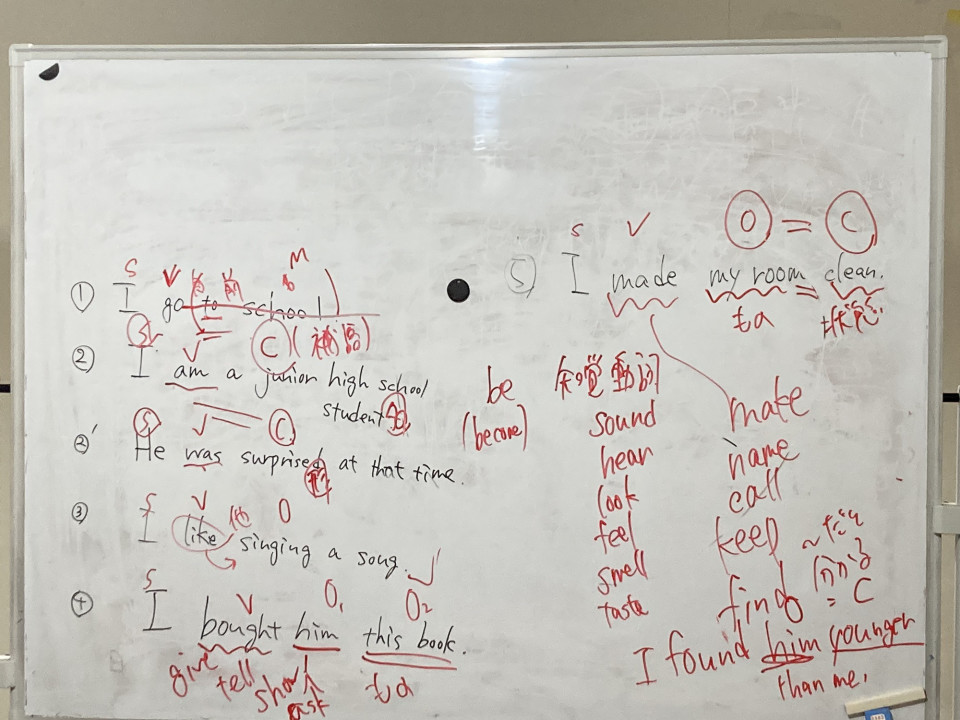 S V M
① I go to school
S V = C (補語)
② I am a junior high school
student
S V C
②' He was surprised at that time.
S V 他 O
③ I like singing a song.
S V O₁ O₂
④ I bought him this book.
give tell show ask
be
(become)
知覚動詞
sound
hear
look
feel
smell
taste
O = C
S V
⑤ I made my room = clean.
状態
make
name
call
keep
find
= C
I found him younger
than me.